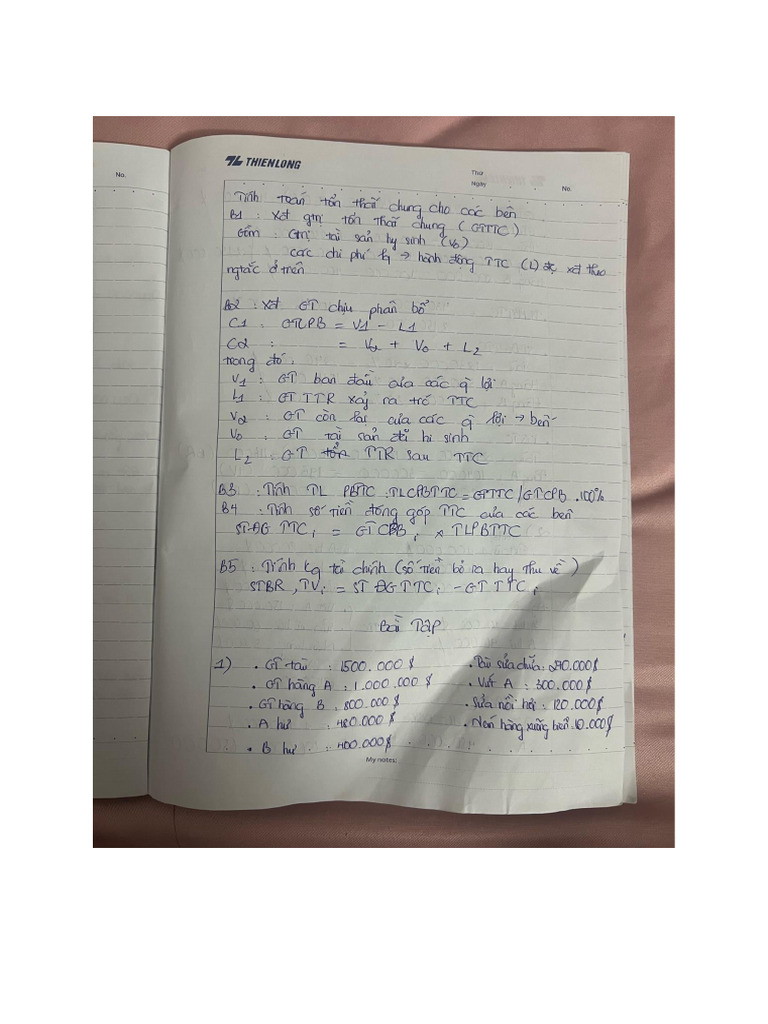 No.
THIENLONG
Thứ
Ngày
No.
Tính toán tổn thất chung cho các bên
B1 : Xét gtrị tổn thất chung (GTTTC)
Gồm : Gtrị tài sản hy sinh (V0)
các chi phí lq → hành động TTC (L) đc xét theo
ngtắc ở trên
B2 : Xét GT chịu phân bổ
C1 : GTCPB = V1 - L1
C2 : = V2 + V0 + L2
trong đó,
V1 : GT ban đầu của các q lợi
L1 : GT TTR xảy ra trc TTC
V2 : GT còn lại của các q lợi → bến
V0 : GT tài sản đã hi sinh
L2 : GT TTR sau TTC
B3 : Tính TL PBTTC : TLCPBTTC = GTTTC / GTCPB . 100%
B4 : Tính số tiền đóng góp TTC của các bên
ST ĐG TTC i = GTCPB i x TLPBTTC
B5 : Tính kq tài chính (số tiền bỏ ra hay thu về)
STBR, TV i = ST ĐG TTC i - GT TTC i
Bài Tập
1) • GT tàu : 1500.000 $ • Tàu sửa chữa : 290.000 $
• GT hàng A : 1.000.000 $ • Vứt A : 300.000 $
• GT hàng B : 800.000 $ • Sửa nồi hơi : 120.000 $
• A hư : 480.000 $ • Ném hàng xuống biển : 10.000 $
• B hư : 400.000 $
My notes: